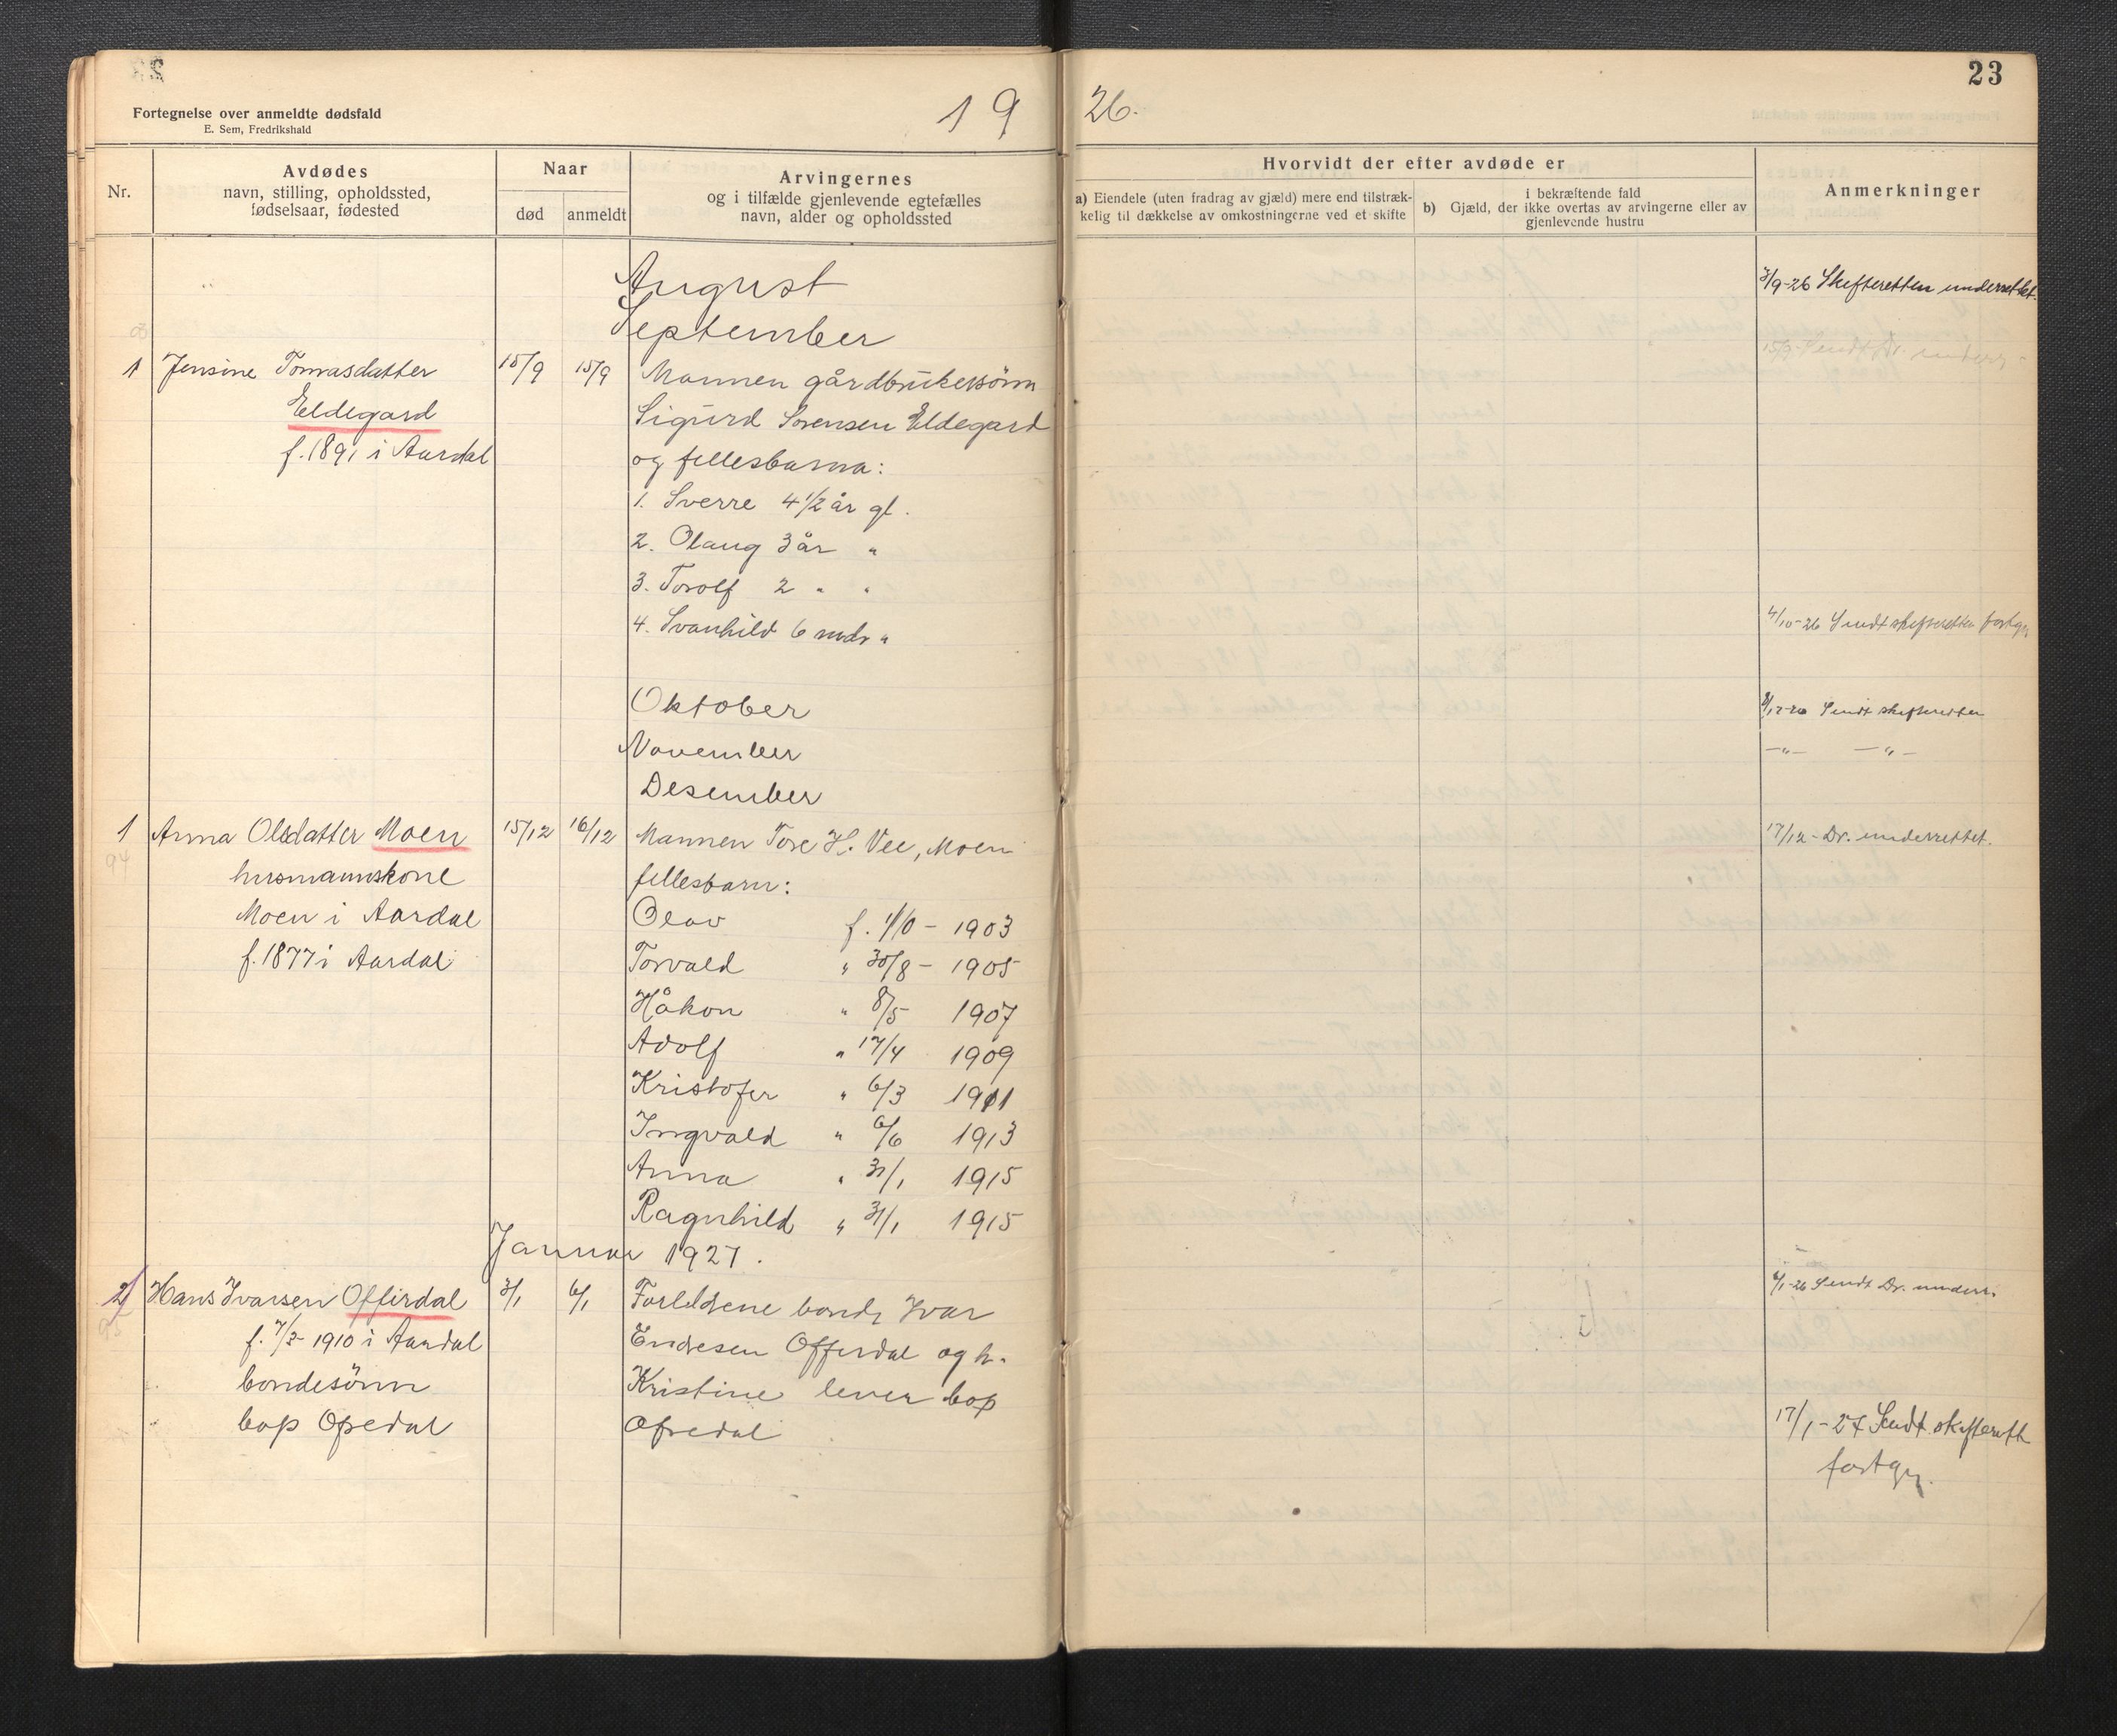 23
Fortegnelse over anmeldte dødsfald
E. Sem, Fredrikshald
19 26.
Nr.
Avdødes
navn, stilling, opholdssted,
fødselsaar, fødested
Naar
død
anmeldt
Arvingernes
og i tilfælde gjenlevende egtefælles
navn, alder og opholdssted
Hvorvidt der efter avdøde er
a) Eiendele (uten fradrag av gjæld) mere end tilstræk-
kelig til dækkelse av omkostningerne ved et skifte
i bekræftende fald
b) Gjæld, der ikke overtas av arvingerne eller av
gjenlevende hustru
Anmerkninger
August
3/9-26 Skifteretten underrettet.
September
15/9 Sendt Dr. underr.
1 Jensine Tomasdatter 15/9 15/9 Mannen gårdbrukersönn
Eldegard Sigurd Sorensen Eldegard
f. 1891 i Aardal og fellesbarna:
1. Sverre 4 1/2 år gl.
2. Olaug 3 år "
3. Torolf 2 " "
4. Svanhild 6 mdr "
4/10-26 Sendt skifteretten
Oktober
Sendt skifteretten
November
—"— —"—
Desember
1 Anna Olsdatter Moen 15/12 16/12 Mannen Tore H. Vee, Moen 17/12 - Dr. underrettet.
94
husmannskone fellesbarn:
Moen i Aardal Olav f. 1/10 - 1903
f. 1877 i Aardal Torvald " 30/8 - 1905
Håkon " 8/5 1907
Adolf " 17/4 1909
Kristofer " 6/3 1911
Ingvald " 6/6 1913
Anna " 31/1 1915
Ragnhild " 31/1 1915
Januar 1927.
2 Hans Ivarsen Offerdal 3/1 6/1 Foreldrene bonde Ivar 6/1-26 Sendt Dr. underr.
95
f. 7/3 1910 i Aardal Endresen Offerdal og h.
bondesönn Kristine lever bop
bop Ofredal Ofredal
17/1-27 Sendt skifterett